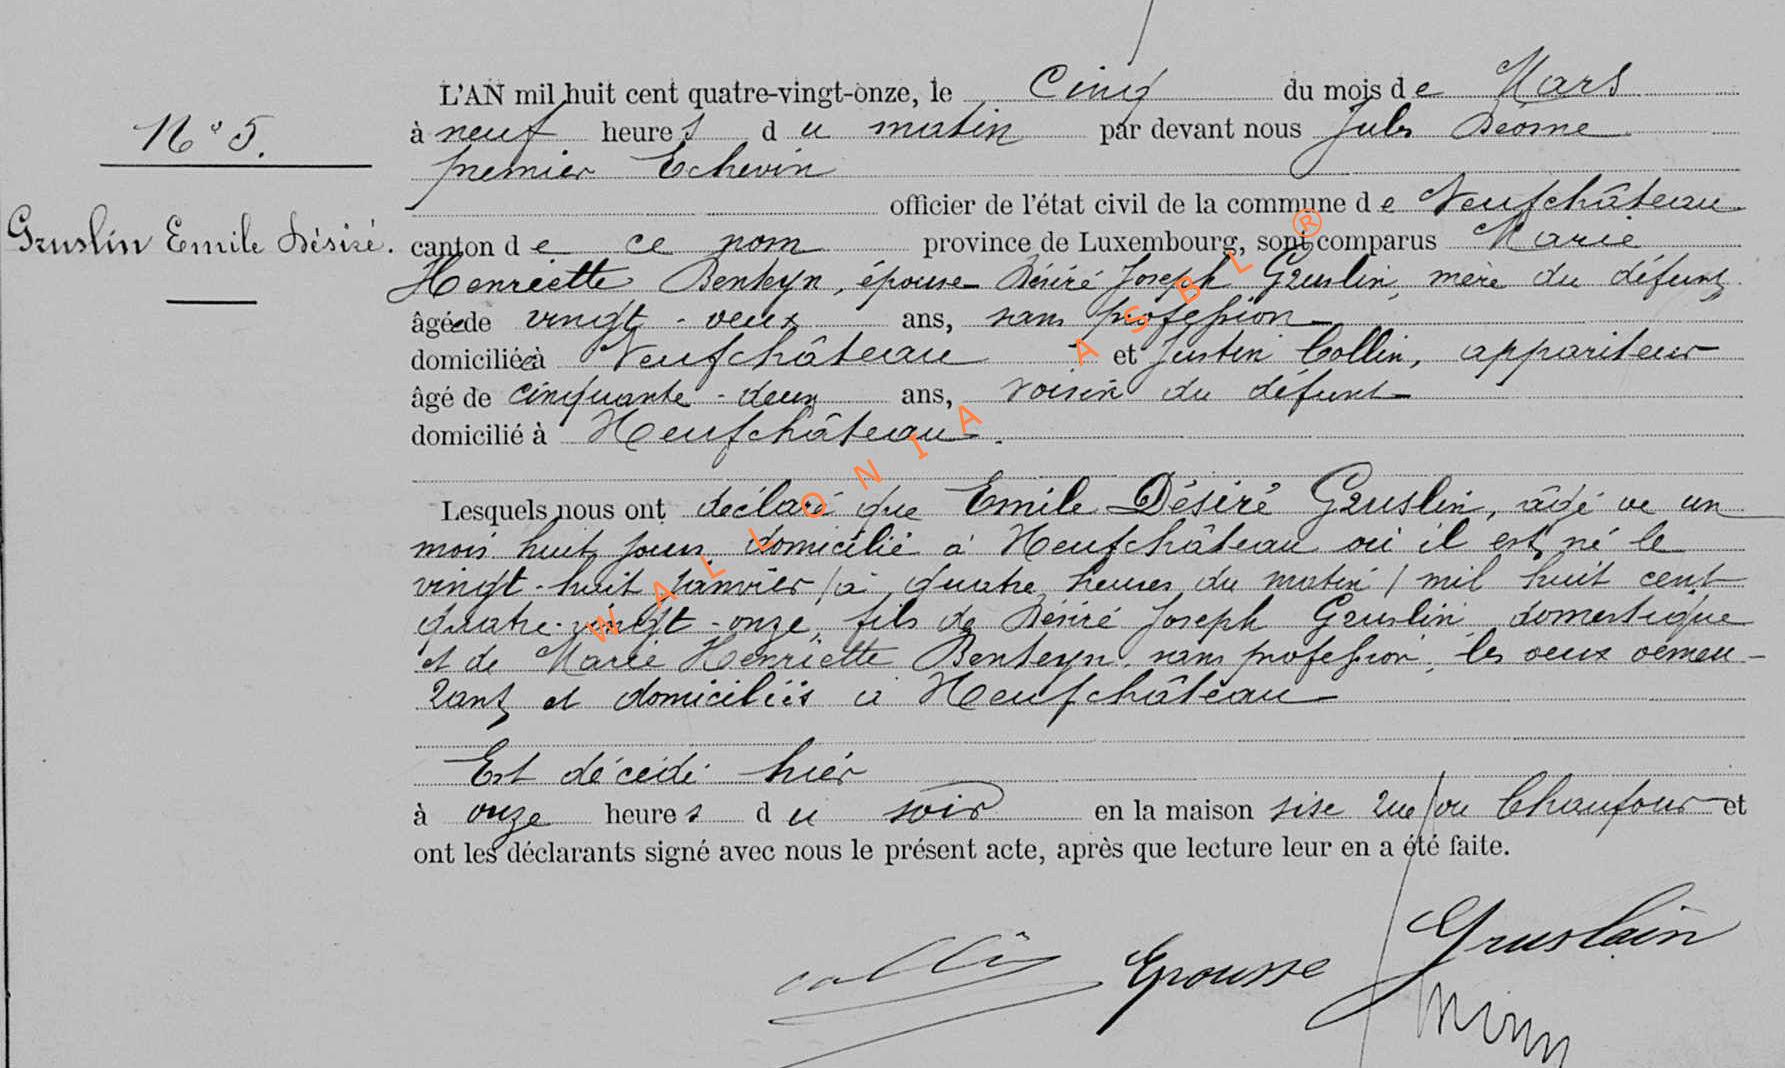 L'AN mil huit cent quatre-vingt-onze, le Cinq du mois de Mars
N° 5.
à neuf heures du matin par devant nous Jules Deome
premier Echevin
officier de l'état civil de la commune de Neufchâteau
Gruslin Emile Désiré.
canton de ce nom province de Luxembourg, sont comparus Marie
Henriette Benteyn, épouse Désiré Joseph Gruslin, mère du défunt
âgée de vingt-deux ans, sans profession
domiciliée à Neufchâteau et Justin Collin, appariteur
âgé de cinquante-deux ans, voisin du défunt
domicilié à Neufchâteau.
Lesquels nous ont déclaré que Emile Désiré Gruslin, âgé de un
mois huit jours domicilié à Neufchâteau où il est né le
vingt-huit janvier / à quatre heures du matin / mil huit cent
quatre-vingt-onze, fils de Désiré Joseph Gruslin domestique
et de Marie Henriette Benteyn, sans profession, les deux demeu-
rant et domiciliés à Neufchâteau
Est décédé hier
à onze heures du soir en la maison sise rue du Chaufour et
ont les déclarants signé avec nous le présent acte, après que lecture leur en a été faite.
collin Epousse Gruslain
WALLONIA ASBL®